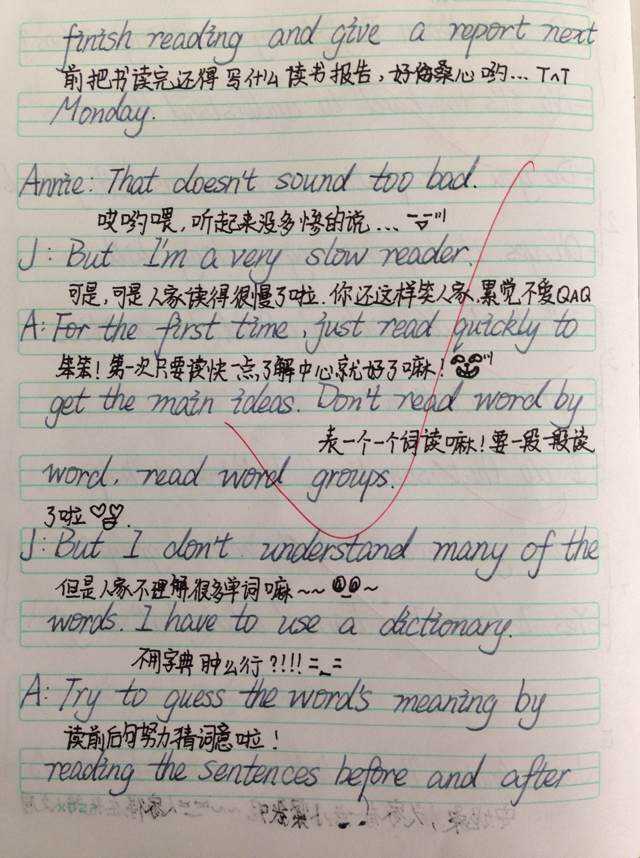 finish reading and give a report next
前把书读完还得写什么读书报告，好伤桑心哟... T^T
Monday.
Annie: That doesn't sound too bad.
哎哟喂，听起来没多惨的说...
J: But I'm a very slow reader.
可是，可是人家读得很慢了啦.你还这样笑人家,累觉不爱QAQ
A: For the first time, just read quickly to
笨笨！第一次只要读快一点了解中心就好了嘛！
get the main ideas. Don't read word by
表一个一个词读嘛！要一段一段读
word, read word groups.
了啦
J: But I don't understand many of the
但是人家不理解很多单词嘛~~
words. I have to use a dictionary.
不用字典肿么行?!!! =_=
A: Try to guess the word's meaning by
读前后句努力猜词意啦！
reading the sentences before and after